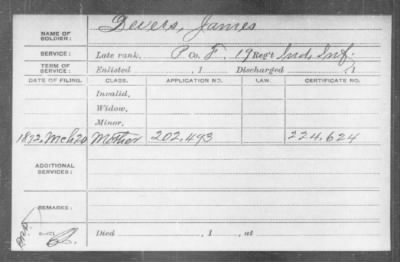 NAME OF SOLDIER: Devers, James
SERVICE: Late rank, P. Co. F, 19 Reg't Ind. Inf.
TERM OF SERVICE: Enlisted , 1 Discharged , 1
DATE OF FILING. CLASS. APPLICATION NO. LAW. CERTIFICATE NO.
Invalid,
Widow,
Minor,
1872, Mch 20 Mother 202.493 224.624
ADDITIONAL SERVICES:
REMARKS:
Died , 1 , at